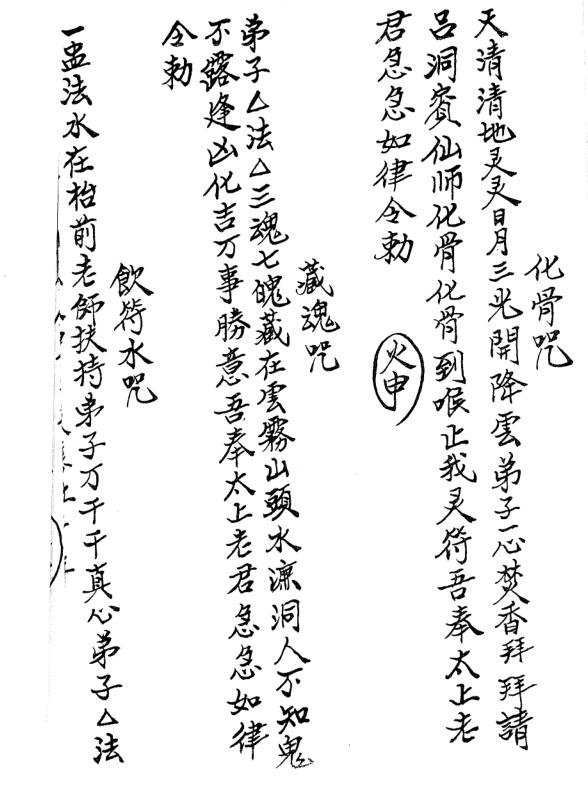 化骨咒
天清清地灵灵日月三光開降雲弟子一心焚香拜拜請
呂洞賓仙师化骨化骨到喉止我灵符吾奉太上老
君急急如律令勅
火申
藏魂咒
弟子△法△三魂七魄藏在雲霧山頭水濂洞人不知鬼
不露逢凶化吉万事勝意吾奉太上老君急急如律
令勅
飲符水咒
一盅法水在枱前老師扶持弟子万千千真心弟子△法